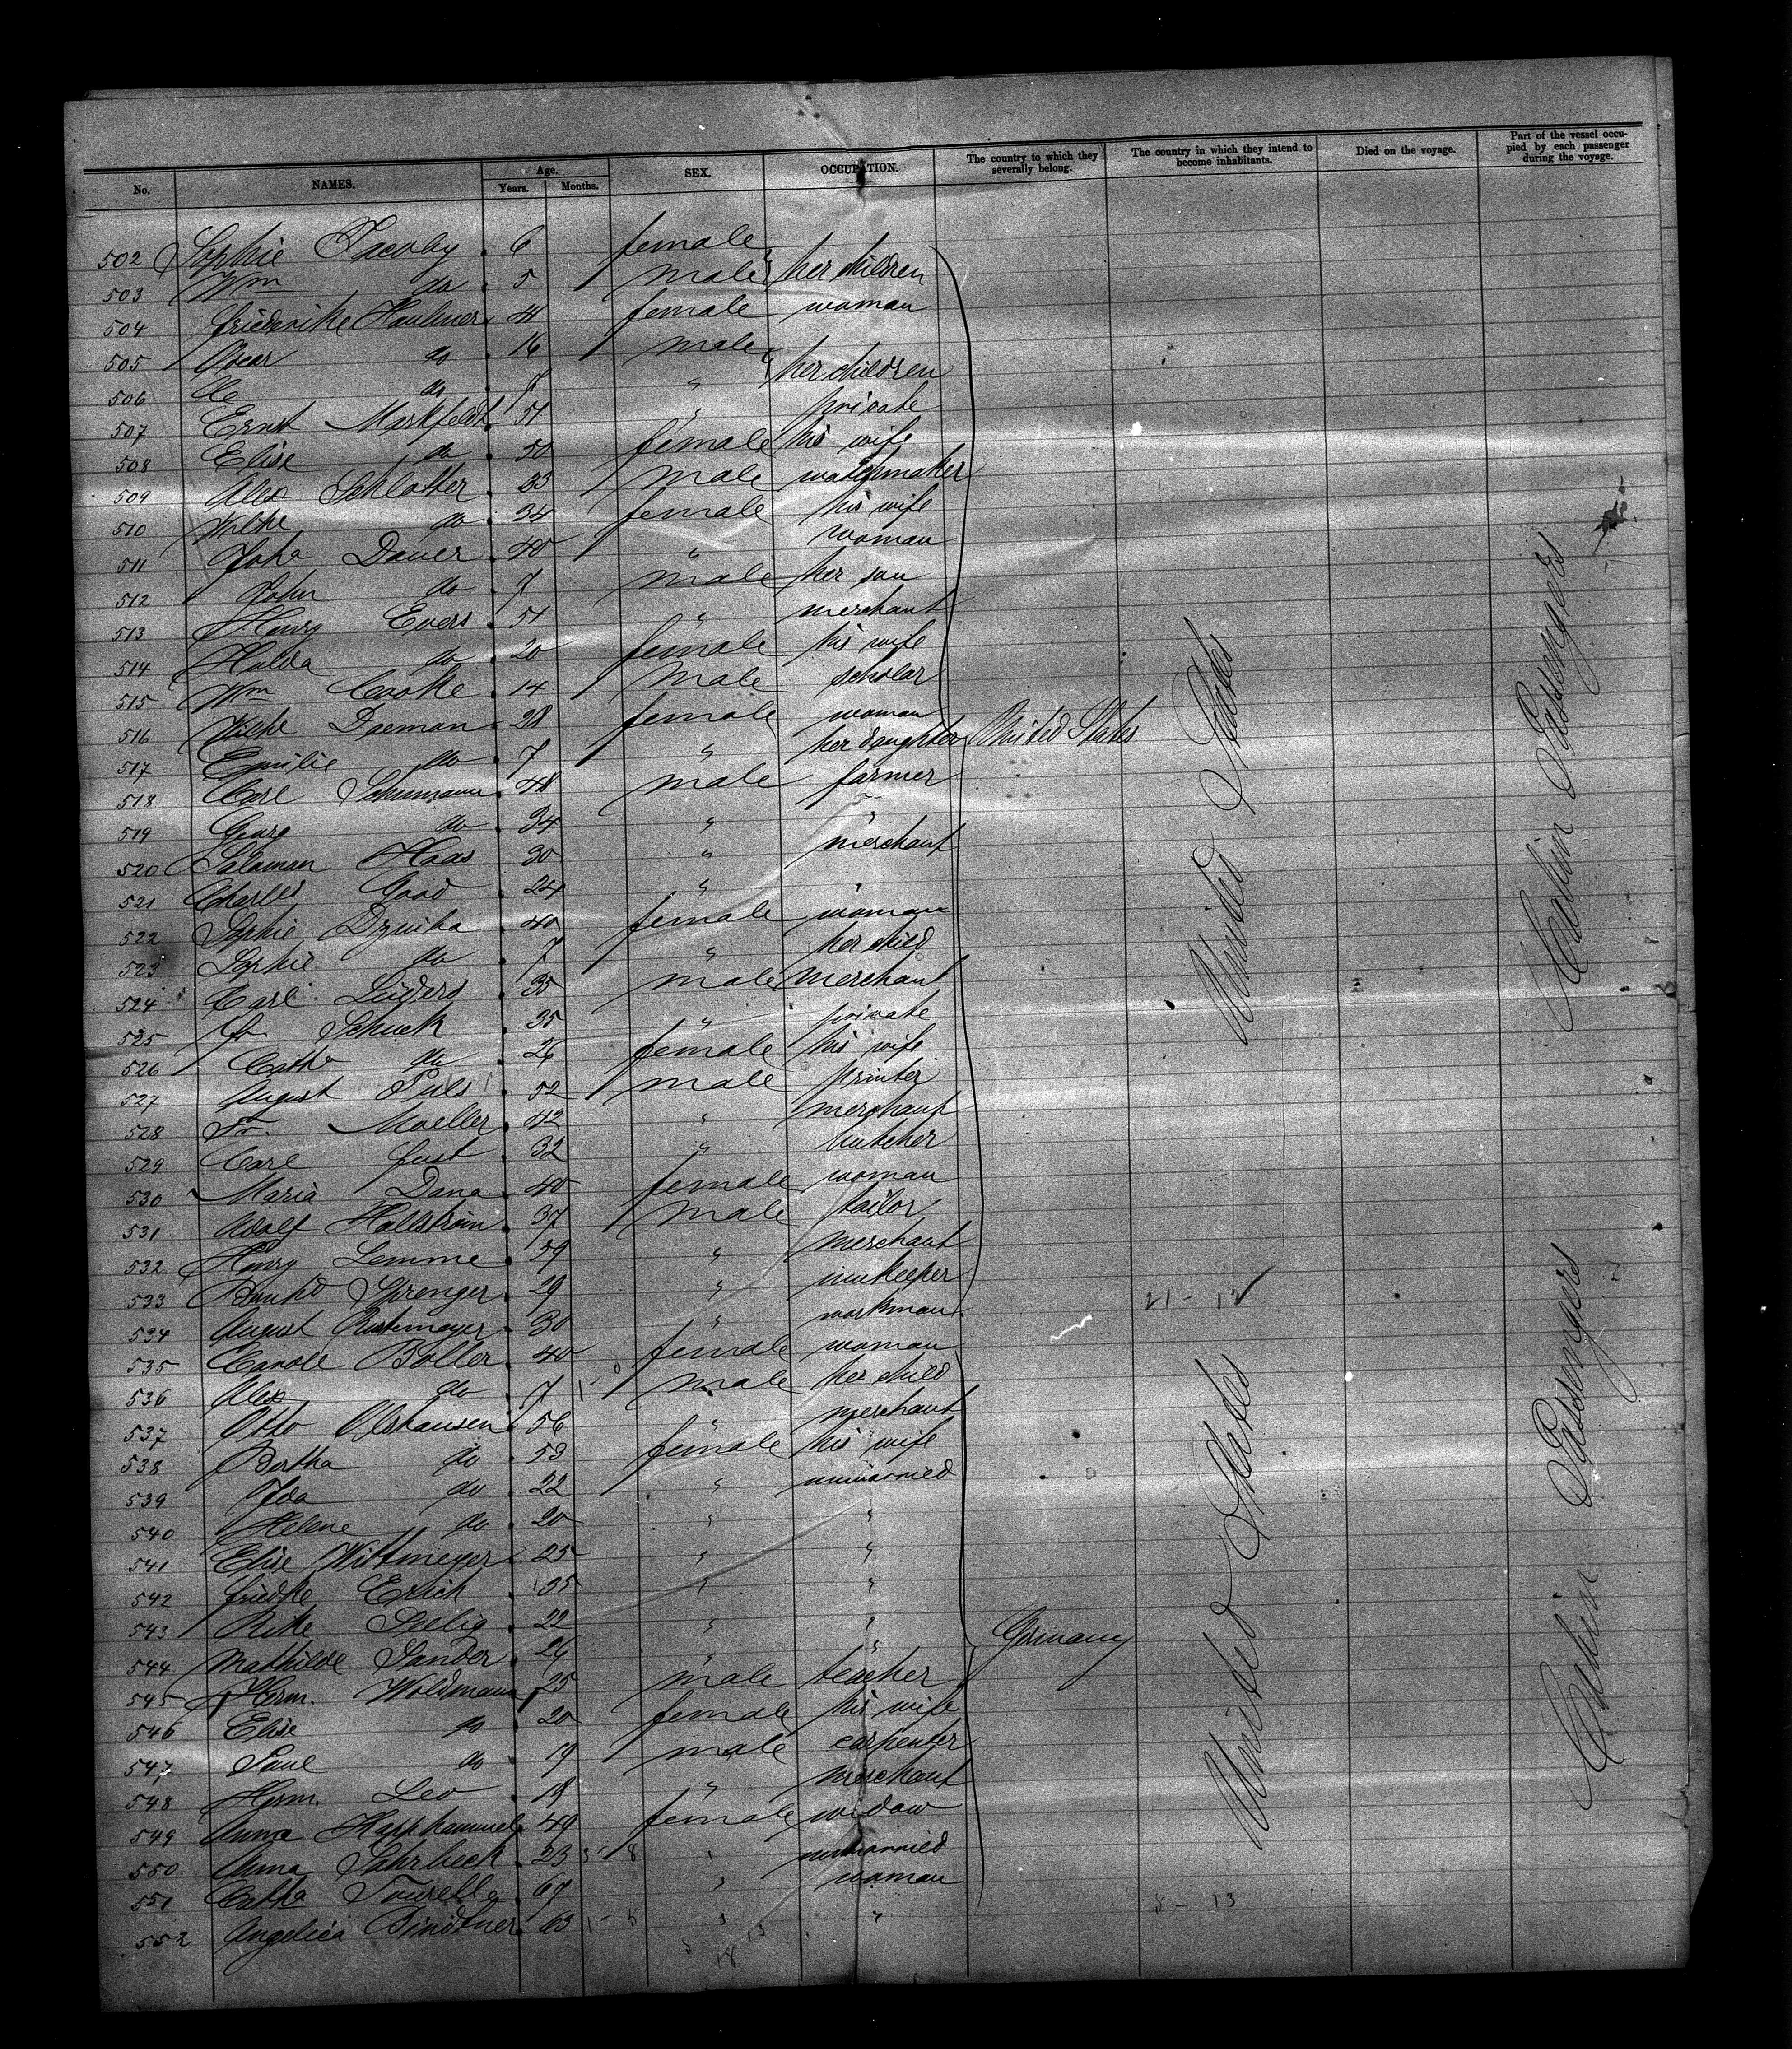 No. NAMES. Age. Years. Months. SEX. OCCUPATION. The country to which they severally belong. The country in which they intend to become inhabitants. Died on the voyage. Part of the vessel occupied by each passenger during the voyage.
502 Sophie Jacoby 6 female
503 Wm do 5 male her children
504 Friederike 41 female woman
505 Oscar do 16 male
506 do 7 " her children
507 Ernst Markfeldt 51 " private
508 Elise do 50 female his wife
509 Alex Schlotter 33 male watchmaker
510 Wilhe do 34 female his wife
511 Joha Dauer 40 " woman
512 John do 7 male her son
513 Henry Evers 51 " merchant
514 Hulda do 20 female his wife
515 Wm Cooke 14 male scholar
516 Wilhe Daeman 28 female woman
517 Emilie do 7 " her daughter United States
518 Carl Schumann 48 male farmer
519 Georg do 34 " "
520 Salaman Haas 30 " merchant
521 Charles Good 24 " "
522 Sophie 40 female woman
523 Sophie do 7 " her child
524 Carl Lüders 35 male merchant
525 Fr Schuck 35 " private
526 Cathe do 26 female his wife
527 August Puls 52 male printer
528 Fr. Moeller 42 " merchant
529 Carl Just 32 " butcher
530 Maria Dana 40 female woman
531 Adolf Hallström 37 male tailor
532 Henry Lemme 59 " merchant
533 Sprenger 29 " innkeeper
534 August 30 " workman
535 Carole Boller 40 female woman
536 Alex do 7 male her child
537 Otto Olshausen 56 " merchant
538 Bertha do 53 female his wife
539 Ida do 22 " unmarried
540 Helene do 20 " "
541 Elise Wittmeyer 25 " "
542 Friedke Erich 35 " "
543 Rike Seelig 22 " " Germany
544 Mathilde Sander 26 "
545 Herm. Woldmann 25 male teacher
546 Elise do 20 female his wife
547 Paul do 19 male carpenter
548 Herm. Leo 19 " merchant
549 Anna 49 female widow
550 Anna Sahrbeck 23 " unmarried
551 Catha 67 " woman
552 Angelica Bindtner 63 " "
United States
Cabin Passengers
United States
Cabin Passengers
21 - 12
8 - 13